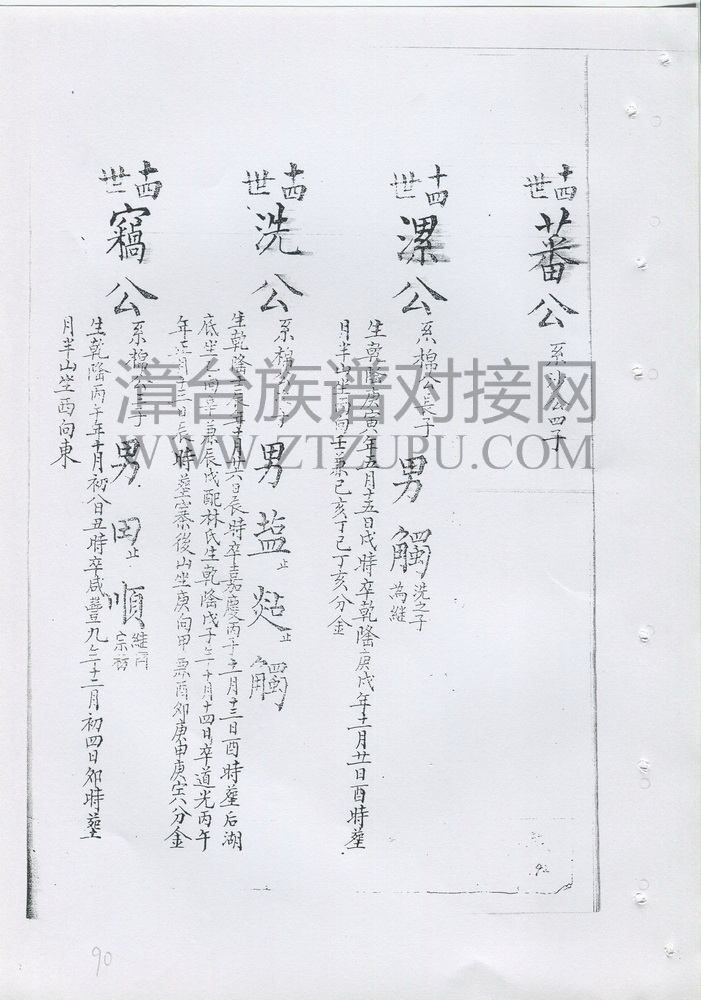 十四世 蕃公 系 公四子
十四世 漯公 系棉公長子 男 觸 洗之子為継
生乾隆庚寅年五月十五日戌時卒乾隆庚戌年十二月廿日酉時葬
月半山坐丙向壬兼巳亥丁巳丁亥分金
十四世 洗公 系棉公 子 男 塩止 烾止 觸
生乾隆 辰年十月廿六日辰時卒嘉慶丙子 月十三日酉時葬后湖
底坐乙向辛兼辰戌配林氏生乾隆戊子年十月十四日卒道光丙午
年 月 三日辰時葬寨後山坐庚向甲兼酉卯庚申庚 六分金
十四世 竊公 系棉公三子 男 田止 順 継 宗
生乾隆丙午年十月初八日丑時卒咸豐九年十二月初四日卯時葬
月半山坐西向東
漳台族谱对接网
WWW.ZTZUPU.COM
92
90